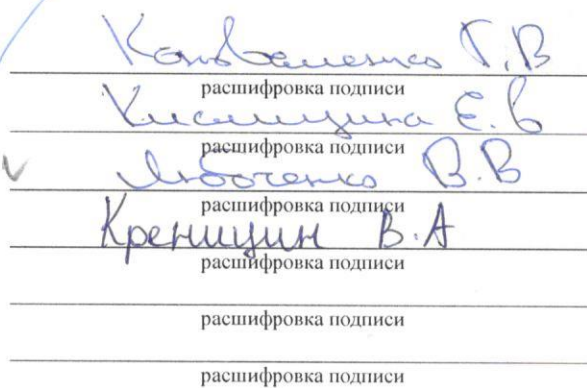 Коноваленко Г.В
расшифровка подписи
Кислицина Е.В
расшифровка подписи
В.В
расшифровка подписи
Креницин В.А
расшифровка подписи
расшифровка подписи
расшифровка подписи